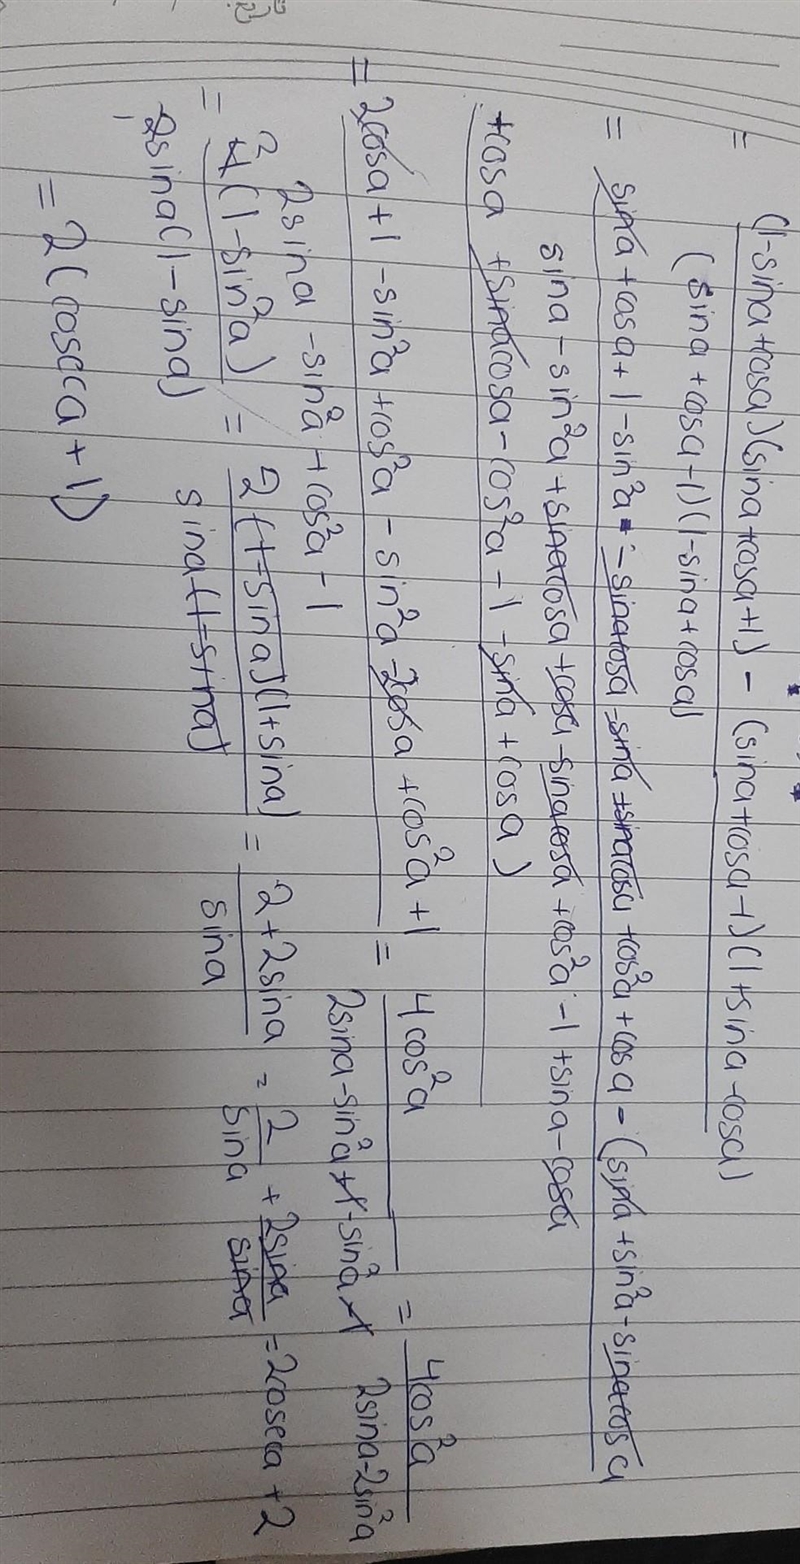 = (1-sina+cosa)(sina+cosa+1) - (sina+cosa-1)(1+sina-cosa)
(sina+cosa-1)(1-sina+cosa)
= sina+cosa+1-sin²a-sinacosa-sina+sinacosa+cos²a+cosa-(sina+sin²a-sinacosa
sina-sin²a+sinacosa+cosa-sinacosa+cos²a-1+sina-cosa
+cosa+sinacosa-cos²a-1-sina+cosa)
= 2cosa+1-sin²a+cos²a-sin²a-2cosa+cos²a+1 = 4cos²a = 4cos²a
2sina-sin²a+cos²a-1 2sina-sin²a+1-sin²a-1 2sina-2sin²a
= 4(1-sin²a) = 2(1-sina)(1+sina) = 2+2sina = 2 + 2sina = 2coseca+2
2sina(1-sina) sina(1-sina) sina sina sina
= 2(coseca+1)